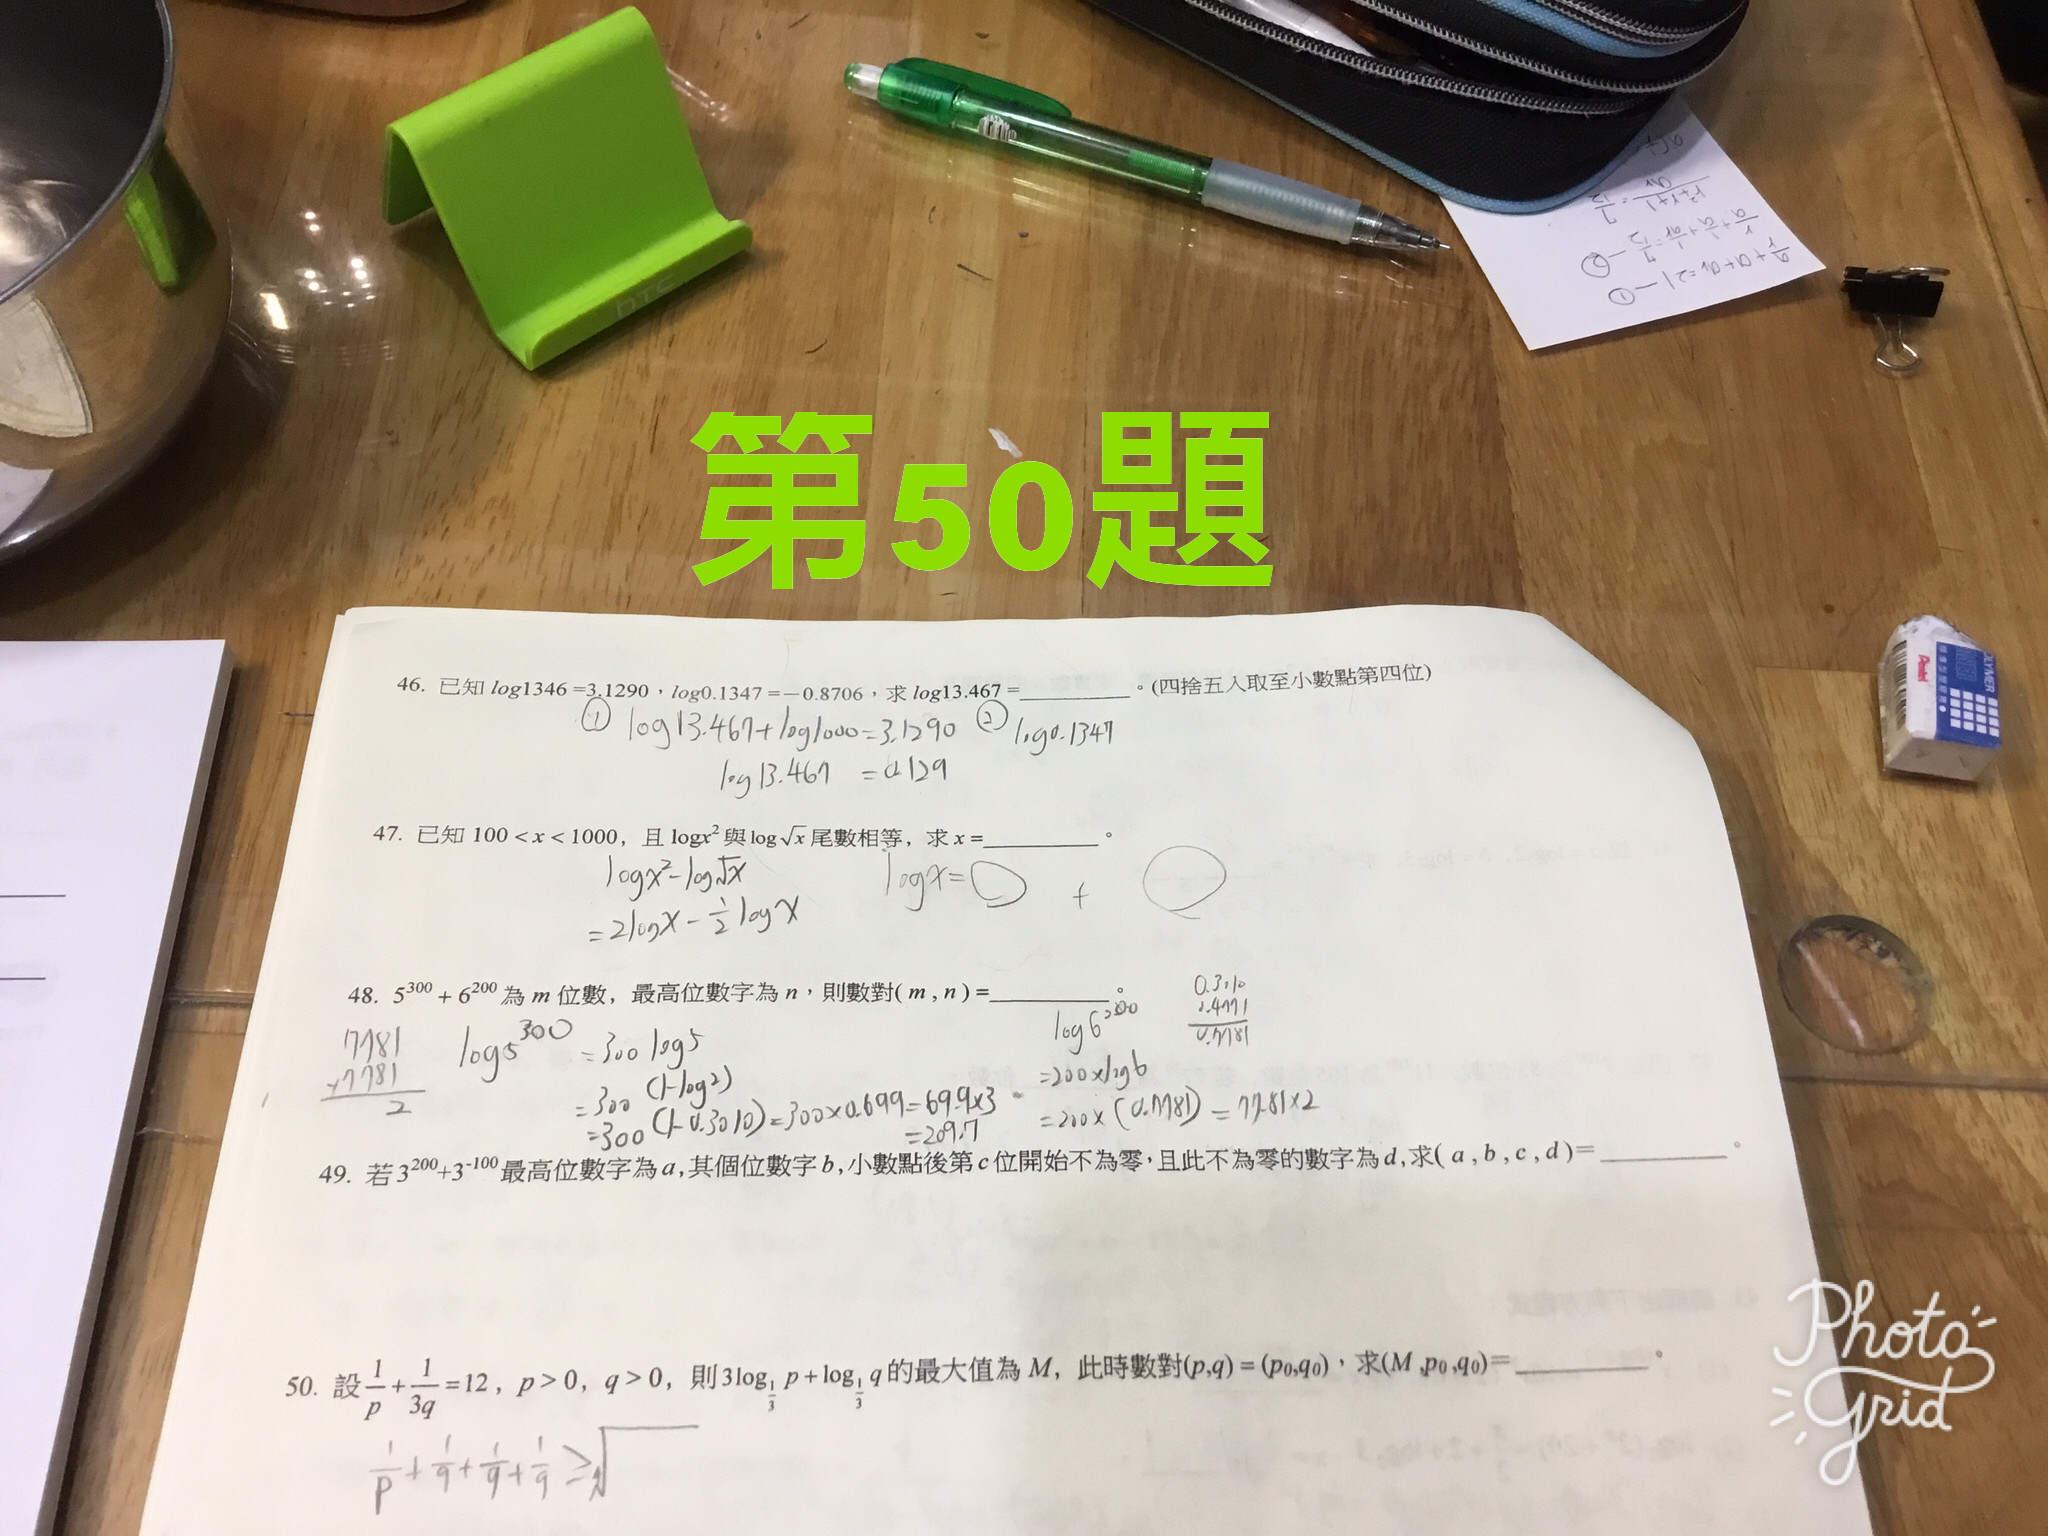 htc
第50題
46. 已知 log1346 =3.1290，log0.1347 =−0.8706，求 log13.467 =________。(四捨五入取至小數點第四位)
① log13.467+log1000=3.1290 ② log0.1347
log13.467 =0.129
47. 已知 100 < x < 1000，且 logx² 與 log√x 尾數相等，求 x =________。
logx²−log√x
logx= +
=2logx−½logx
48. 5³⁰⁰ + 6²⁰⁰ 為 m 位數，最高位數字為 n，則數對( m , n ) =________。
0.3010
0.4771
0.7781
7781
×7781
2
log5³⁰⁰ =300 log5
=300 (1−log2)
=300 (1−0.3010)=300×0.699=69.9×3
=209.7
log6²⁰⁰
=200×log6
=200×(0.7781) =77.81×2
49. 若 3²⁰⁰+3⁻¹⁰⁰ 最高位數字為 a,其個位數字 b,小數點後第 c 位開始不為零,且此不為零的數字為 d,求( a , b , c , d )=________。
50. 設 1/p + 1/3q =12，p > 0，q > 0，則 3log_{1/3} p + log_{1/3} q 的最大值為 M，此時數對(p,q) = (p₀,q₀)，求(M ,p₀ ,q₀)=________。
1/p + 1/q + 1/q + 1/q ≥ √
Pentel
Photo
Grid